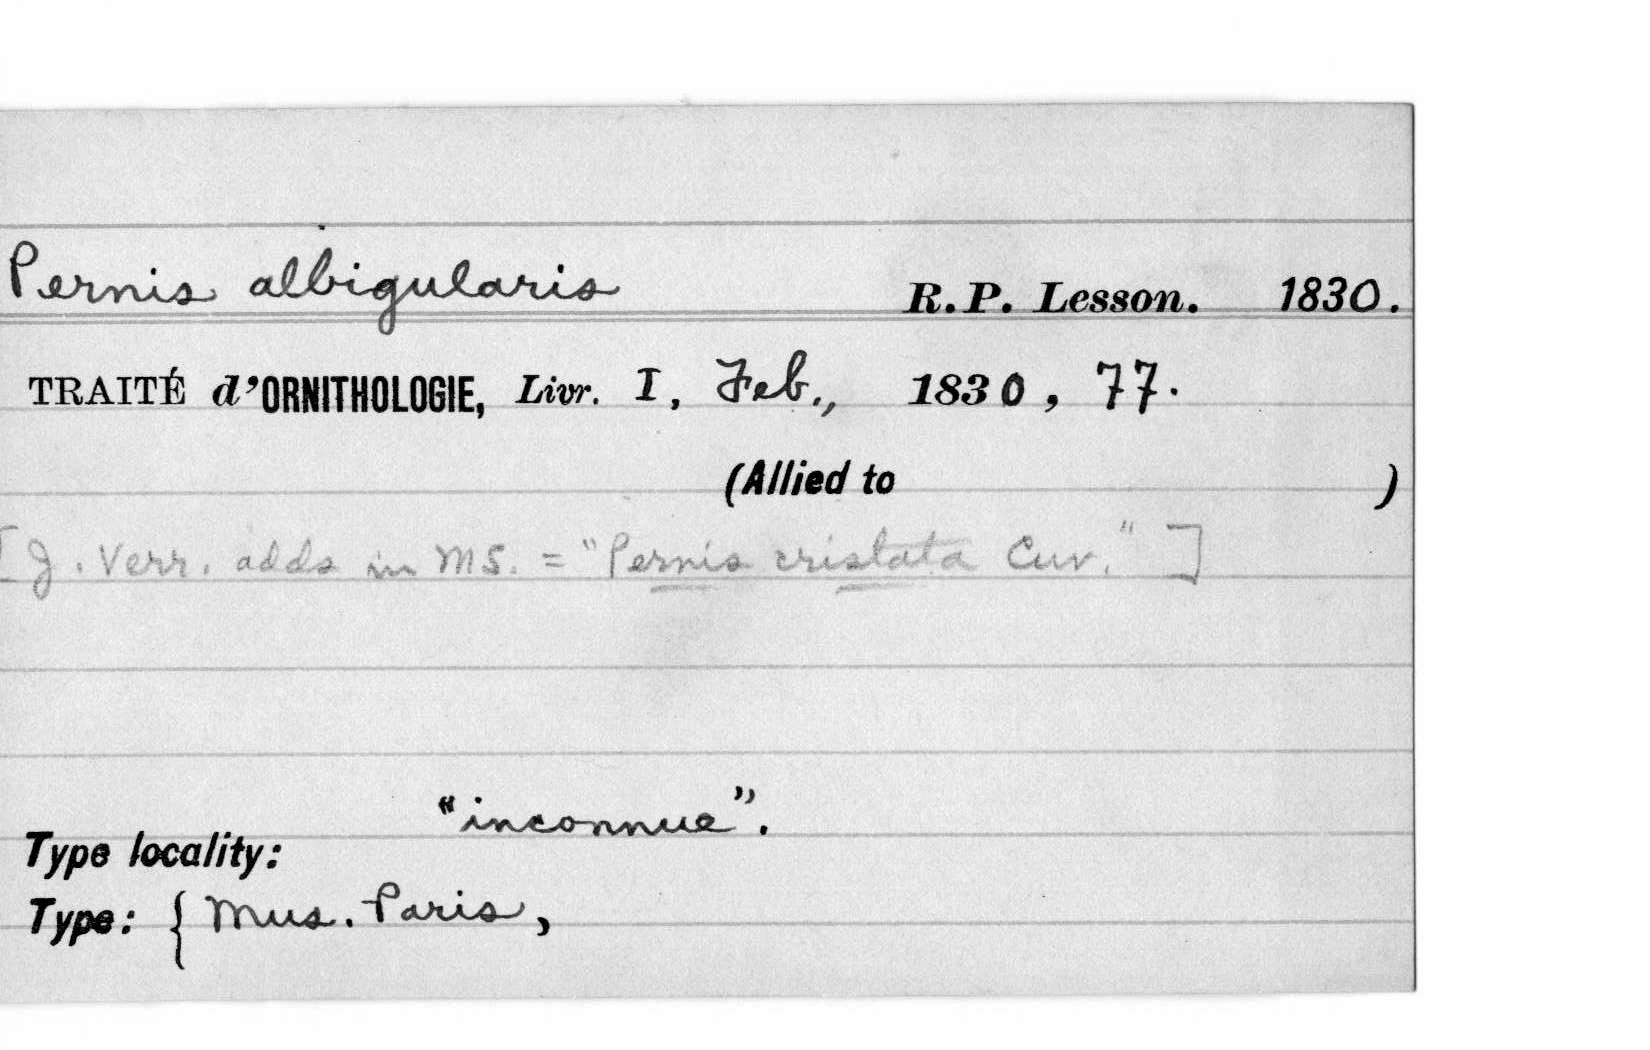 Pernis albigularis R.P. Lesson. 1830.
TRAITÉ d'ORNITHOLOGIE, Livr. I, Feb., 1830, 77.
(Allied to )
[J. Verr. adds in MS. = "Pernis cristata Cuv."]
"inconnue".
Type locality:
Type: { Mus. Paris,